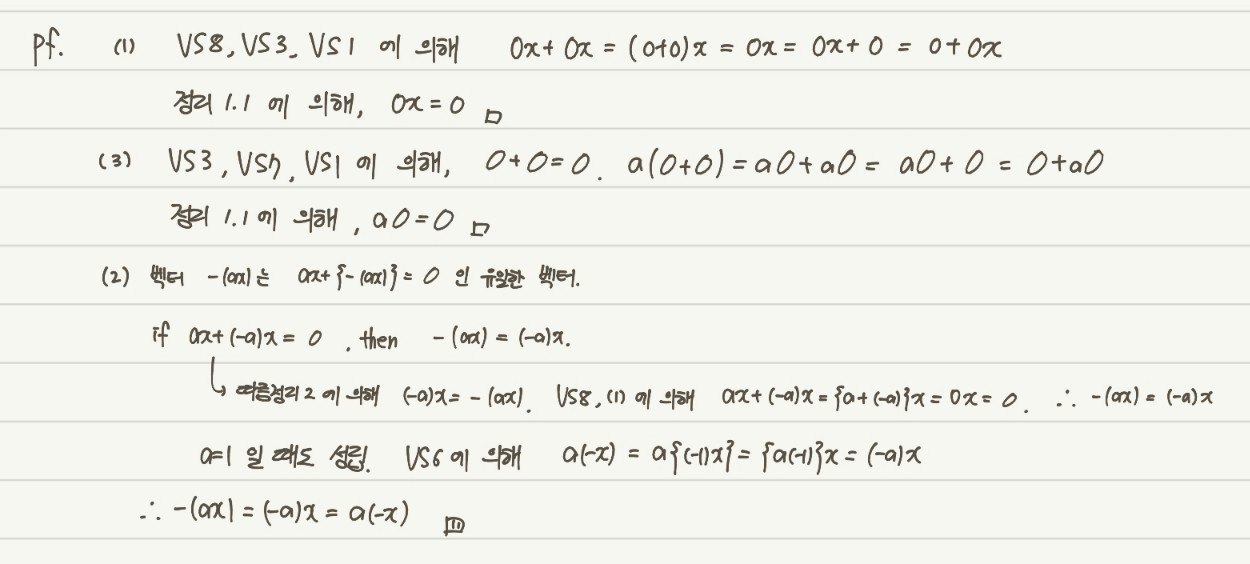 pf. (1) VS8, VS3, VS1 에 의해 0x + 0x = (0+0)x = 0x = 0x + 0 = 0 + 0x
정리 1.1 에 의해, 0x = 0 □
(3) VS3, VS7, VS1 에 의해, 0 + 0 = 0. a(0+0) = a0 + a0 = a0 + 0 = 0 + a0
정리 1.1 에 의해, a0 = 0 □
(2) 벡터 -(ax)는 ax + {-(ax)} = 0 인 유일한 벡터.
if ax + (-a)x = 0, then -(ax) = (-a)x.
↳ 따름정리 2 에 의해 (-a)x = -(ax). VS8, (1) 에 의해 ax + (-a)x = {a + (-a)}x = 0x = 0. ∴ -(ax) = (-a)x
a=1 일 때도 성립. VS6 에 의해 a(-x) = a{(-1)x} = {a(-1)}x = (-a)x
∴ -(ax) = (-a)x = a(-x)